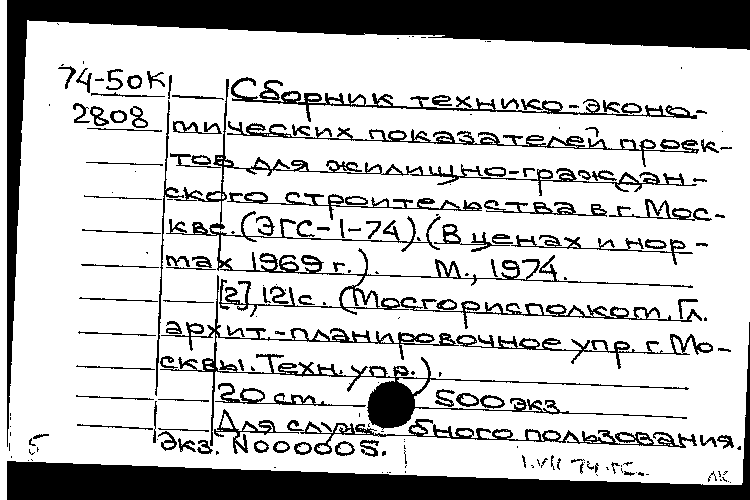 74-50К Сборник технико-эконо-
2808 мических показателей проек-
тов для жилищно-граждан-
ского строительства в г. Мос-
кве. (ЭГС-1-74). (В ценах и нор-
мах 1969 г.). М., 1974.
[2], 121 с. (Мосгорисполком. Гл.
архит.-планировочное упр. г. Мо-
сквы. Техн. упр.).
20 см. 500 экз.
Для служебного пользования.
Экз. N000005.
Б 1.VII 74 ЛК